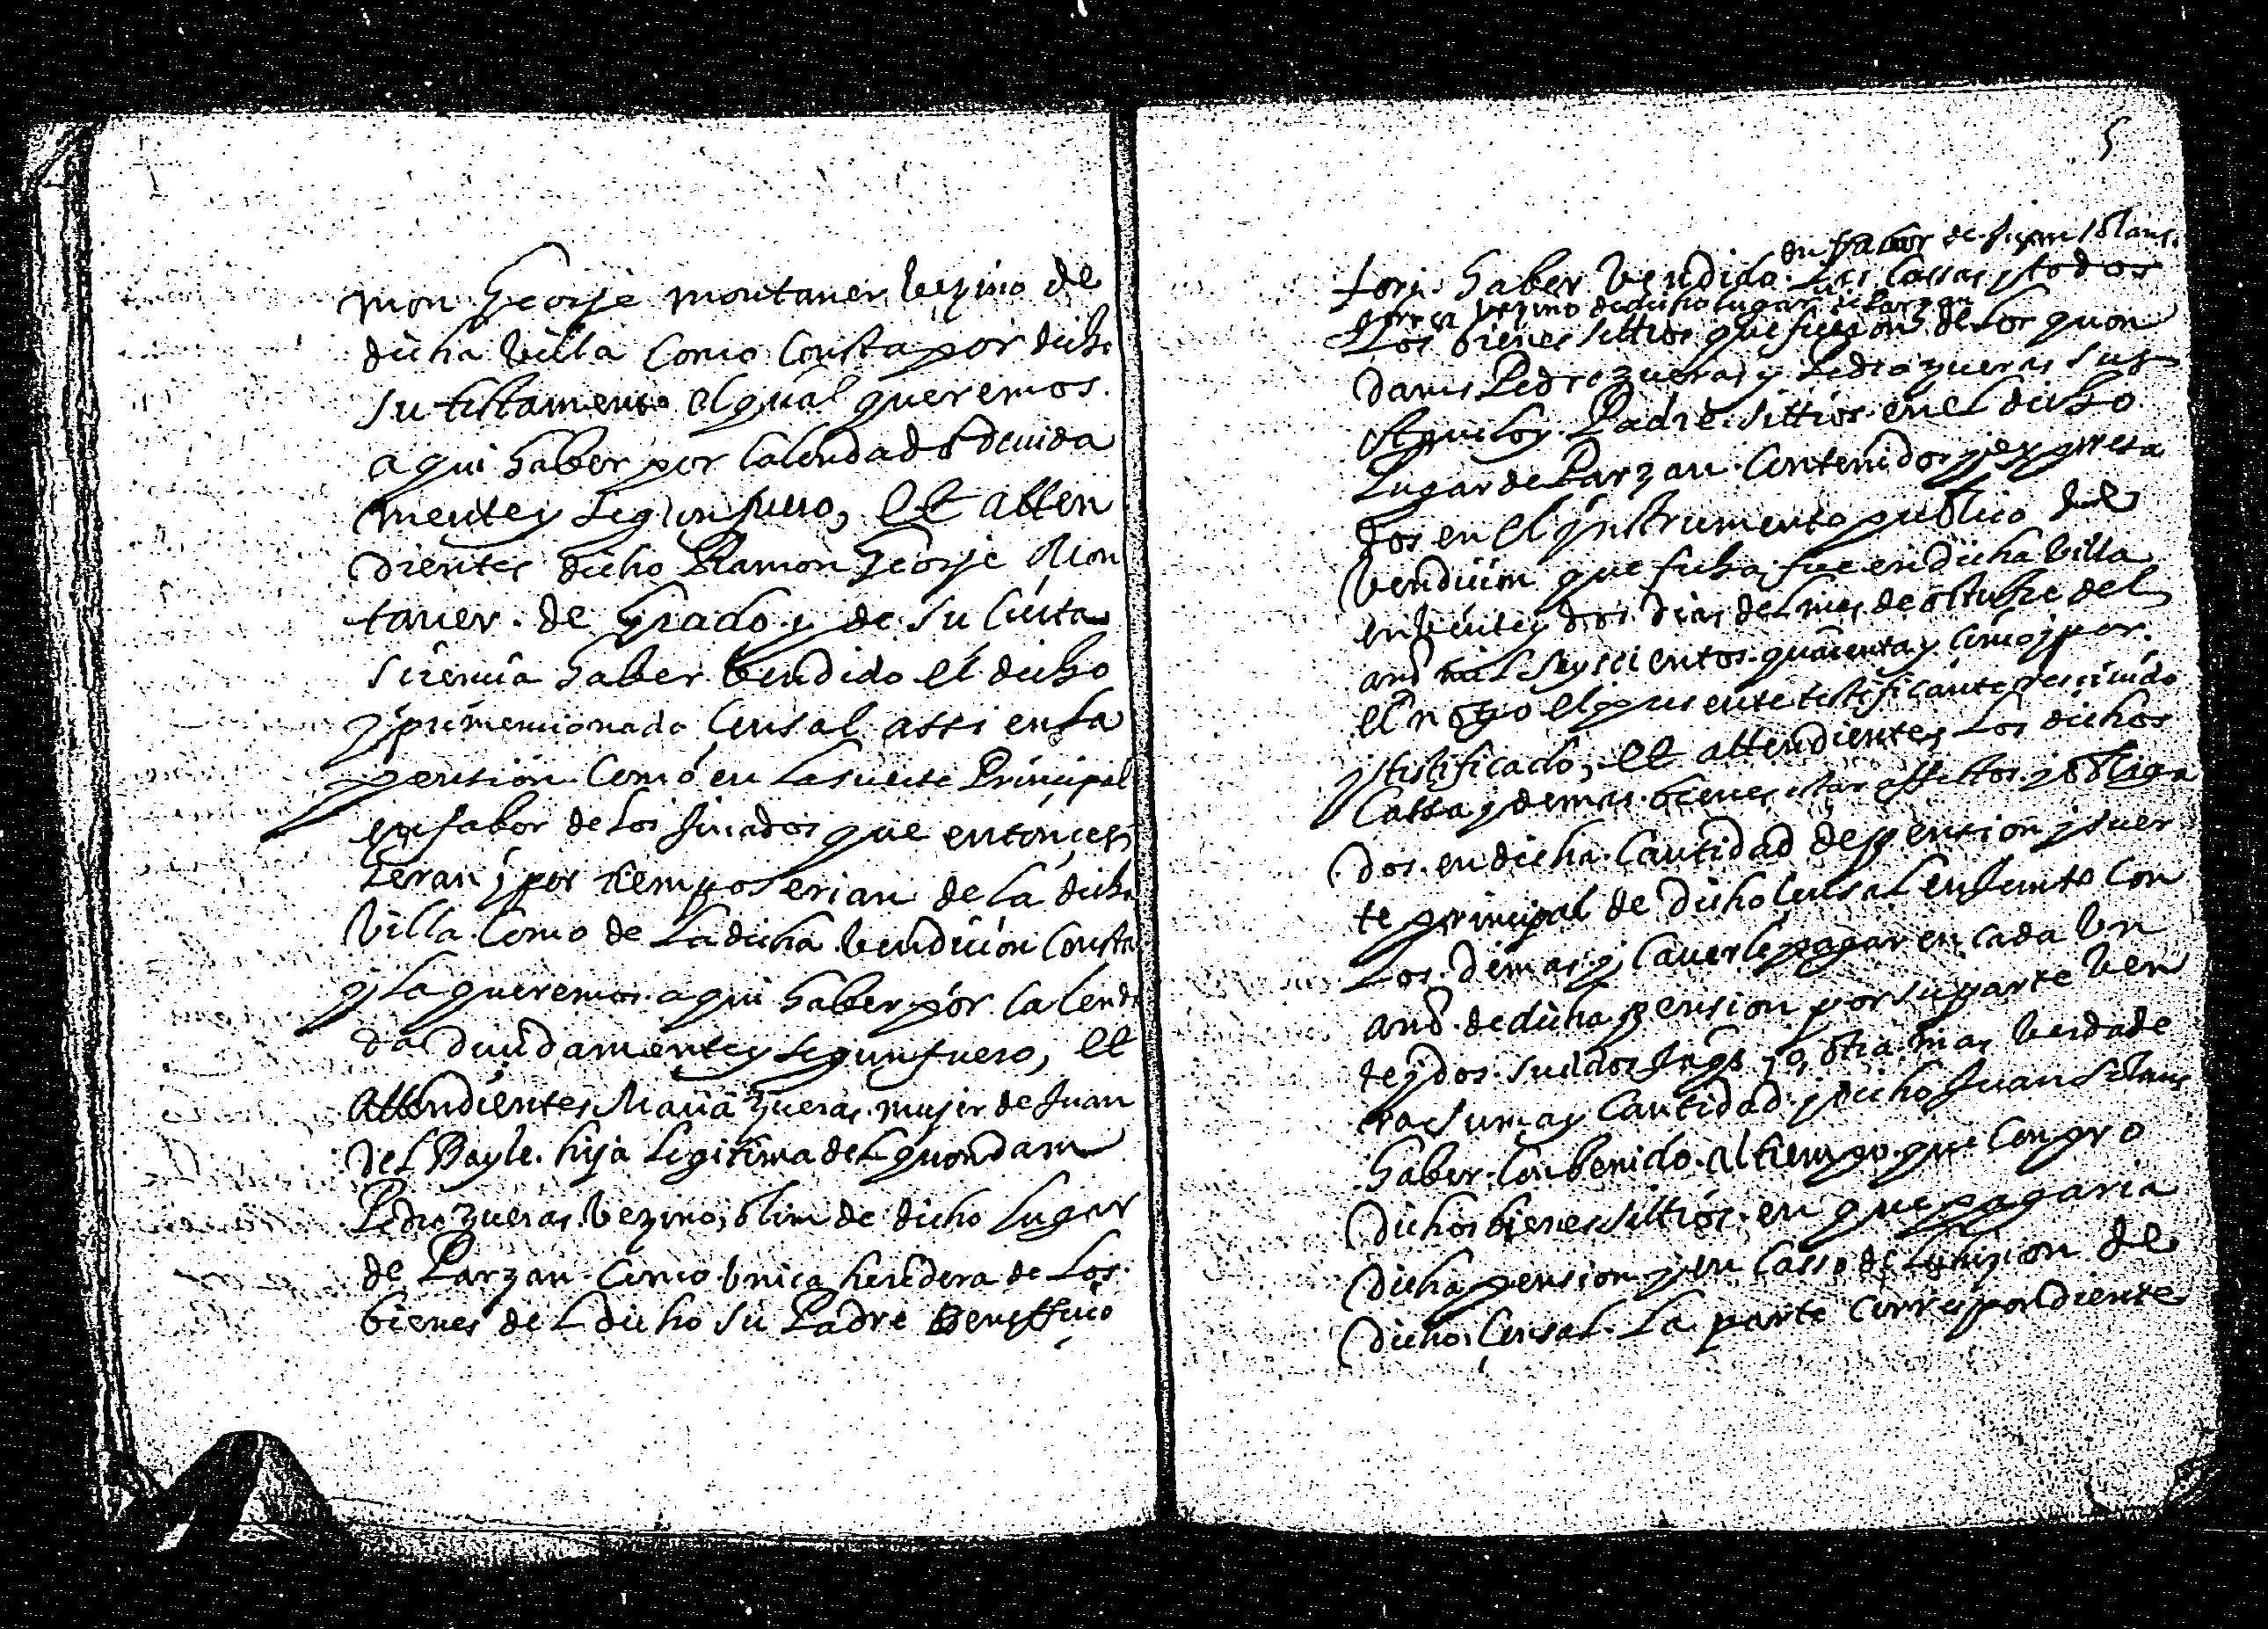 mon George montaner vezino de
dicha villa como consta por dicho
su testamento el qual queremos
aqui haber por calendado devida
mente y segun fuero, et atten
dientes dicho Ramon George Mon
taner de grado y de su cierta
sciencia haber bendido el dicho
y primencionado censal assi en la
pension como en la suerte Principal
en fabor de los Jurados que entonces
eran y por tiempo serian de la dicha
villa como de la dicha bendicion consta
y la queremos aqui haber por calenda
da devidamente y segun fuero, et
attendientes Maria zueras mujer de Juan
del Bayle hija legitima del quondam
Pedro zueras vezino olim de dicho lugar
de Parzan como unica heredera de los
bienes del dicho su Padre Beneficio
5
en fabor de Juan
tory haber vendido las cassas y todos
vezino de dicho lugar de Parzan
Los bienes sittios que fueron de los quon
dams Pedro zueras y Pedro zueras sus
Aguelo y Padre sittios en el dicho
Lugar de Parzan contenidos y expressa
dos en el ynstrumento publico de
vendicion que fecha fue en dicha villa
en veinte y dos dias del mes de octubre del
año mil seyscientos quarenta y cinco y por
el noto el presente testificante recivido
y testificado, et attendientes los dichos
cassa y demas bienes estar affectos y obliga
dos en dicha cantidad de pension y suer
te principal de dicho censal en junto con
los demas y caverle pagar en cada un
año de dicha pension por su parte ven
te y dos sueldos Jaqs, o, otra mas verdade
ra suma y cantidad y dicho Juan
haber conbenido al tiempo que conpro
dichos bienes sittios en que pagaria
dicha pension y en casso de luhizion de
dicho censal la parte correspondiente